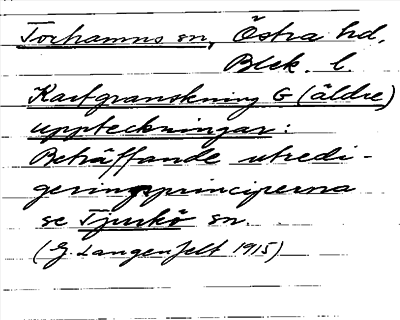 Torhamns sn, Östra hd.
Blek. l.
Kartgranskning G (äldre)
uppteckningar:
Beträffande utredi-
geringsprinciperna
se Tjurkö sn.
(G. Langenfelt 1915)